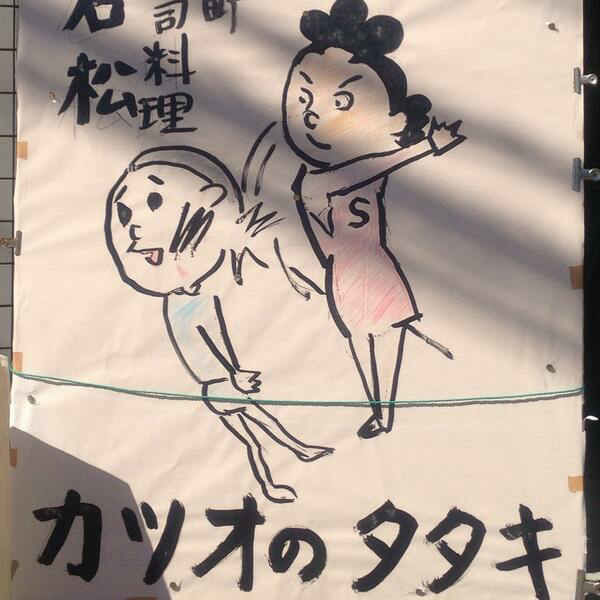 司料理
松
S
カツオのタタキ